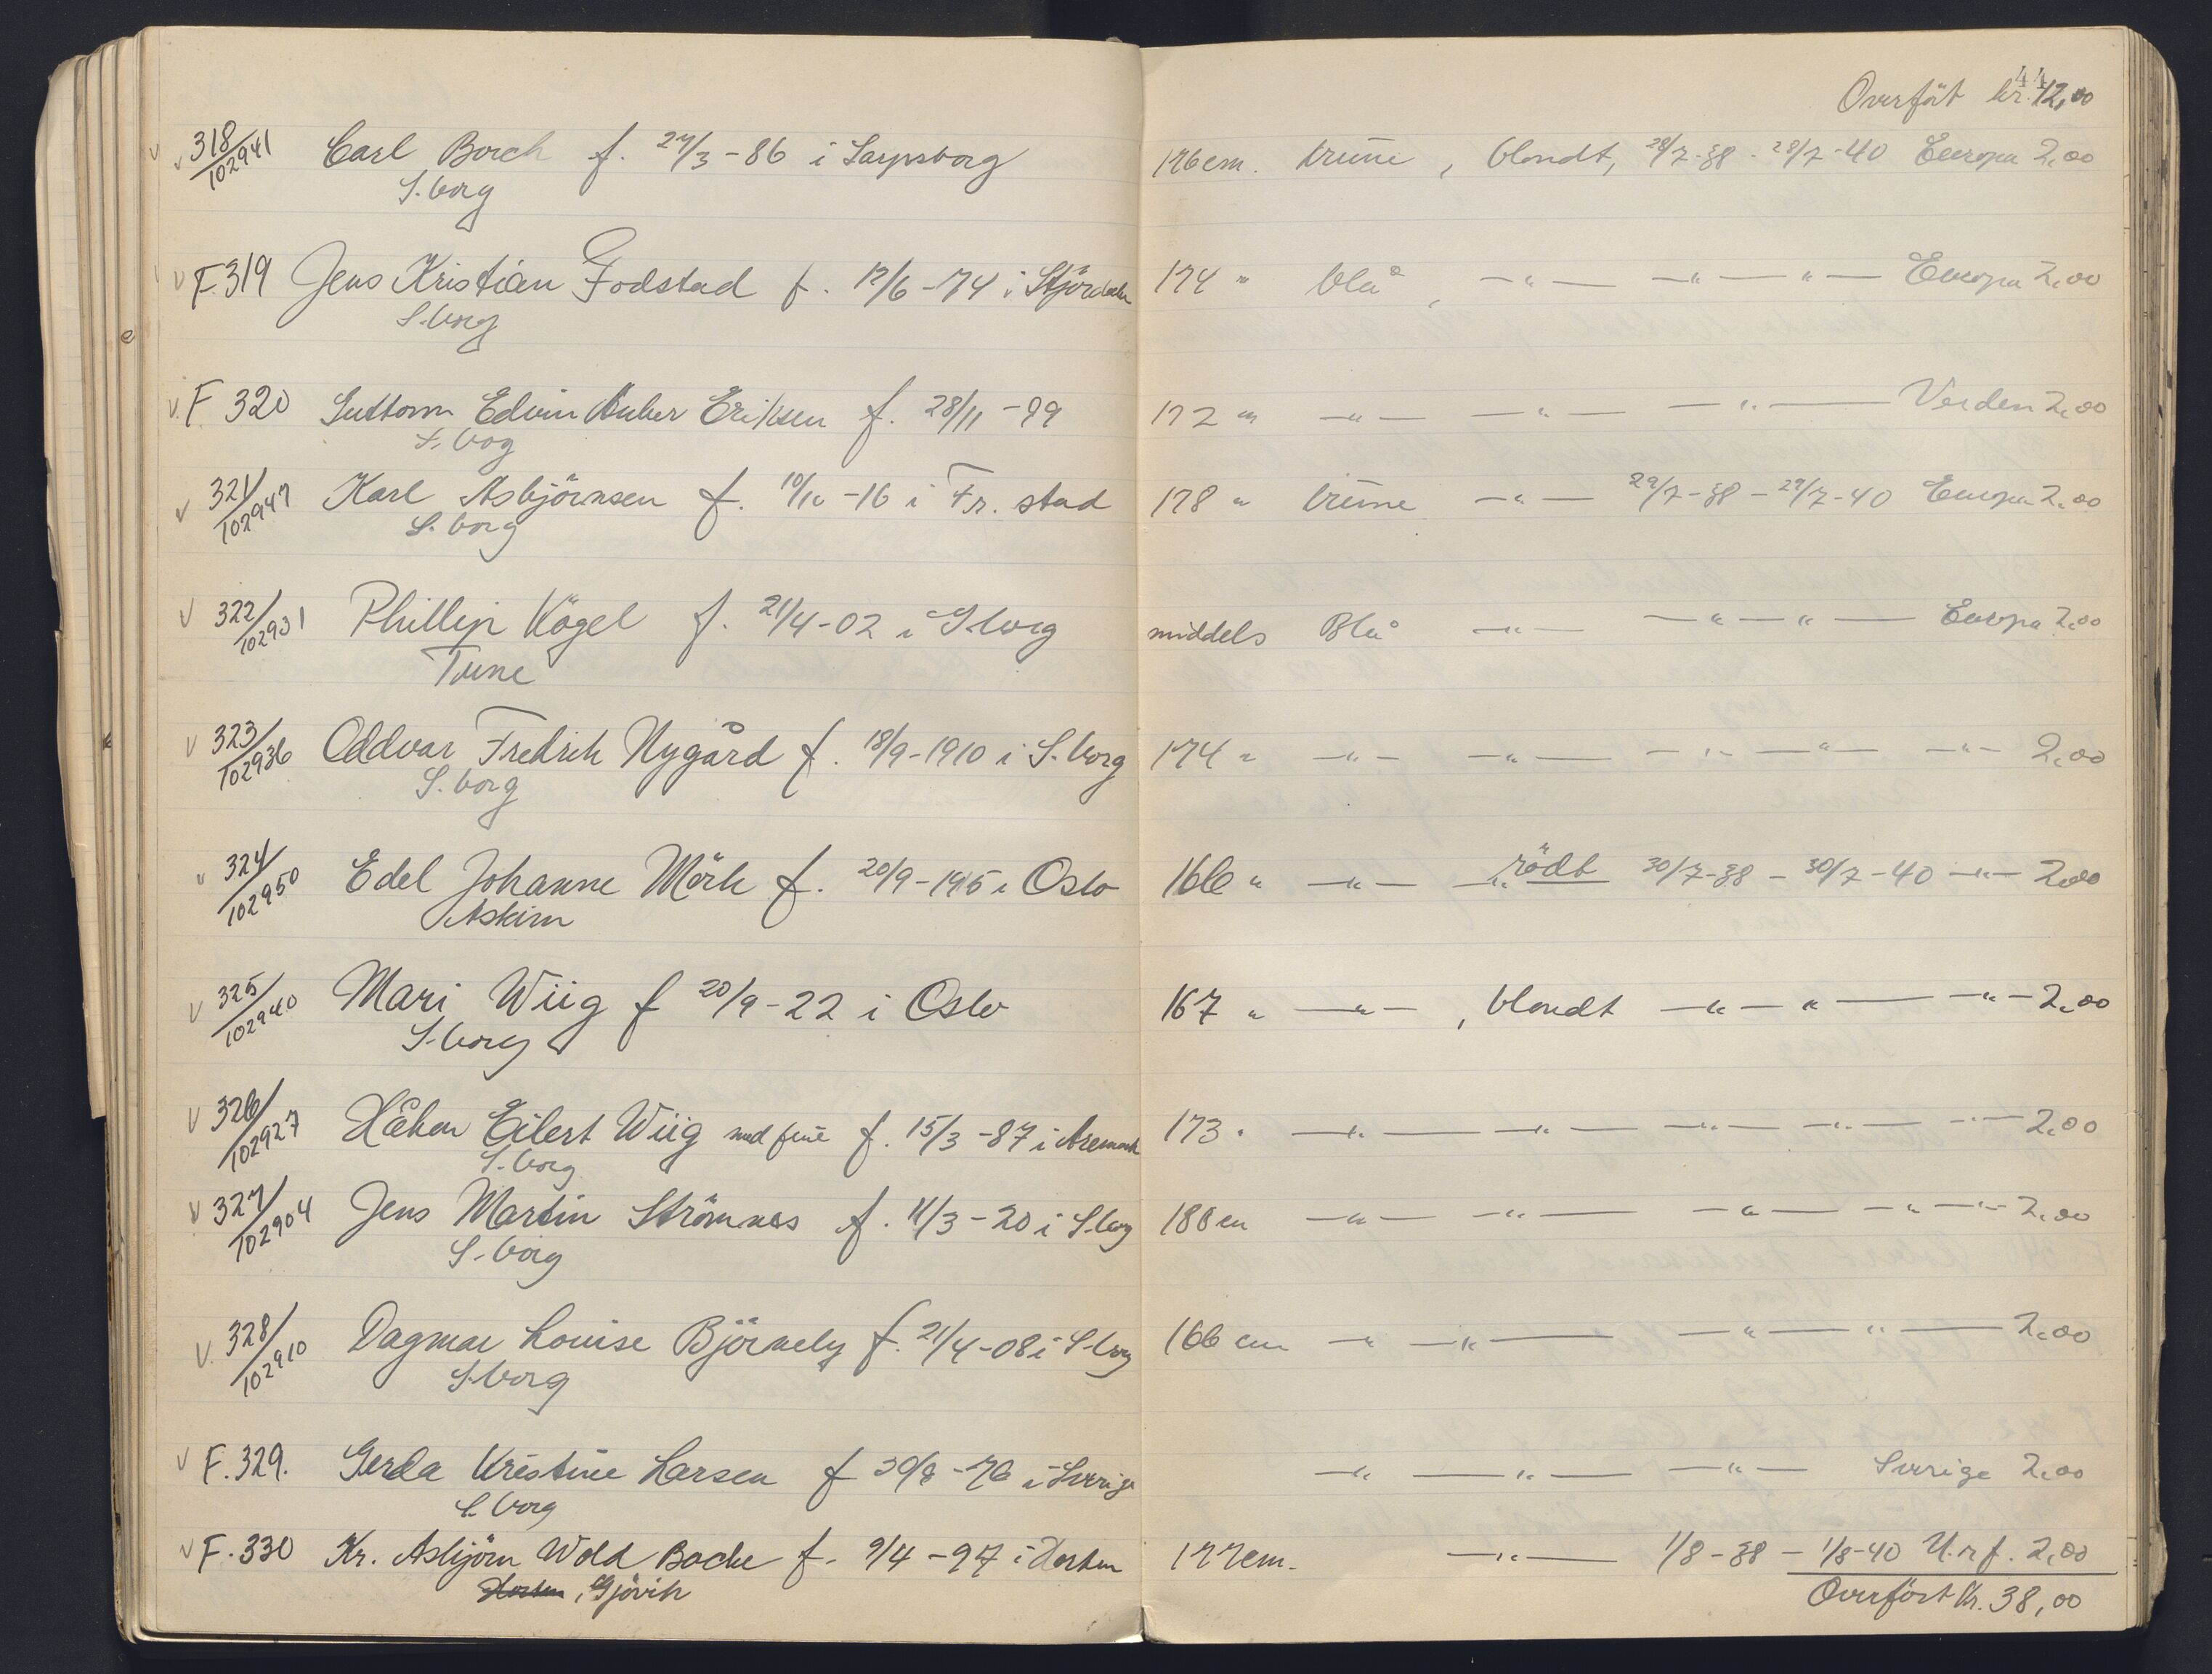 Overført kr. 12,00
v 318/102941 Carl Borch f. 27/3-86 i Sarpsborg 176 cm. brune, blondt, 28/7-38 - 28/7-40 Europa 2,00
S.borg
v F 319 Jens Kristian Fodstad f. 12/6-74 i Stjördalen 174 " blå, — " — — " — " — Europa 2,00
S.borg
v. F 320 Guttorm Edvin Eriksen f. 28/11-99 172 " — " — — " — — " — Verden 2,00
S.borg
v 321/102947 Karl Asbjörnsen f. 10/10-16 i Fr.stad 178 " brune — " — 29/7-38 - 29/7-40 Europa 2,00
S.borg
v 322/102931 Phillip Kögel f. 21/4-02 i S.borg middels Blå — " — — " — " — Europa 2,00
Tune
v 323/102936 Oddvar Fredrik Nygård f. 18/9-1910 i S.borg 174 " — " — — " — — " — " — — " — 2,00
S.borg
v 324/102950 Edel Johanne Mörk f. 20/9-1915 i Oslo 166 " — " — rödt 30/7-38 - 30/7-40 — " — 2,00
Askim
v 325/102940 Mari Wiig f 20/9-22 i Oslo 167 " — " —, blondt — " — " — — " — 2,00
S.borg
v 326/102927 Håkon Eilert Wiig med frue f. 15/3-87 i Aremark 173 " — " — — " — — " — — " — — " — 2,00
S.borg
v 327/102904 Jens Martin Strömnes f. 11/3-20 i S.borg 180 cm — " — — " — — " — — " — " — 2,00
S.borg
v. 328/102910 Dagmar Louise Björneby f. 21/4-08 i S.borg 166 cm — " — " — — " — " — 2,00
S.borg
v F. 329. Gerda Kristine Larsen f 30/8-76 i Sverige — " — — " — — " — Sverige 2,00
S.borg
v F. 330 Kr. Asbjörn Wold Bache f. 9/4-97 i Horten 177 cm. — " — 1/8-38 - 1/8-40 U.r f. 2,00
Horten, Gjövik Overført Kr. 38,00